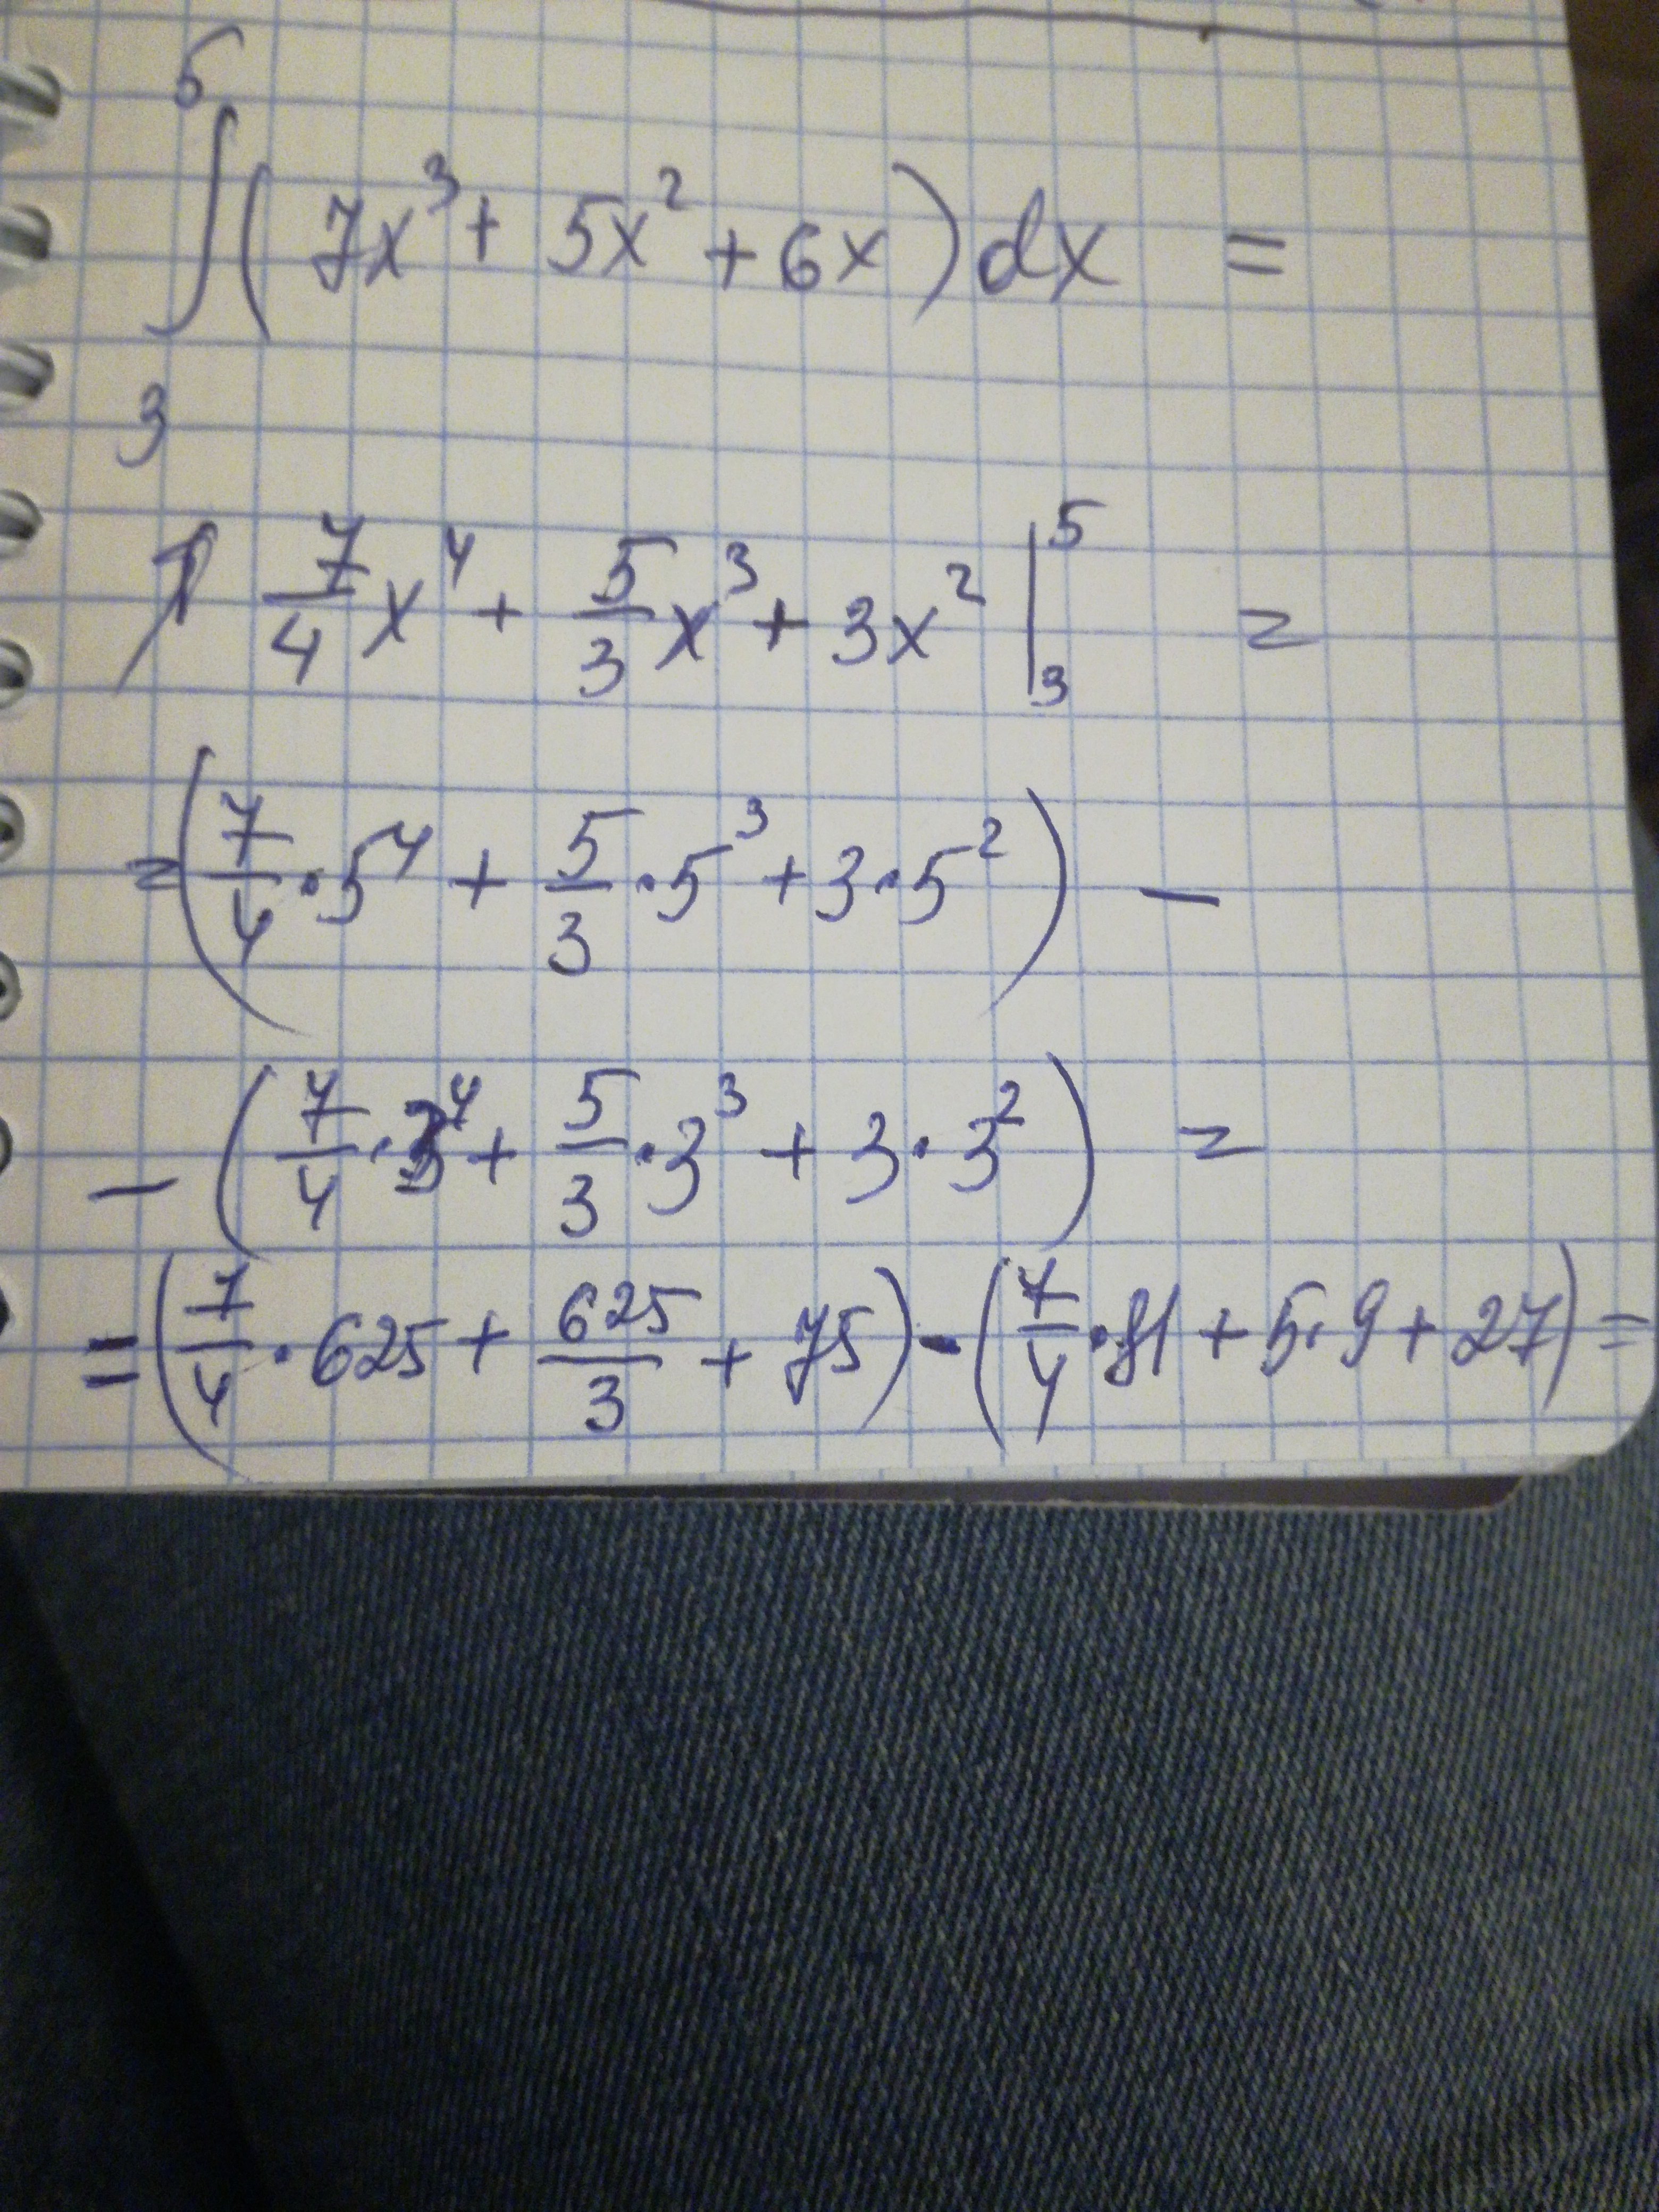 5
∫ ( 7x³ + 5x² + 6x ) dx =
3
7/4 x⁴ + 5/3 x³ + 3x² |₃⁵ =
= ( 7/4 · 5⁴ + 5/3 · 5³ + 3 · 5² ) −
− ( 7/4 · 3⁴ + 5/3 · 3³ + 3 · 3² ) =
= ( 7/4 · 625 + 625/3 + 75 ) - ( 7/4 · 81 + 5 · 9 + 27 ) =